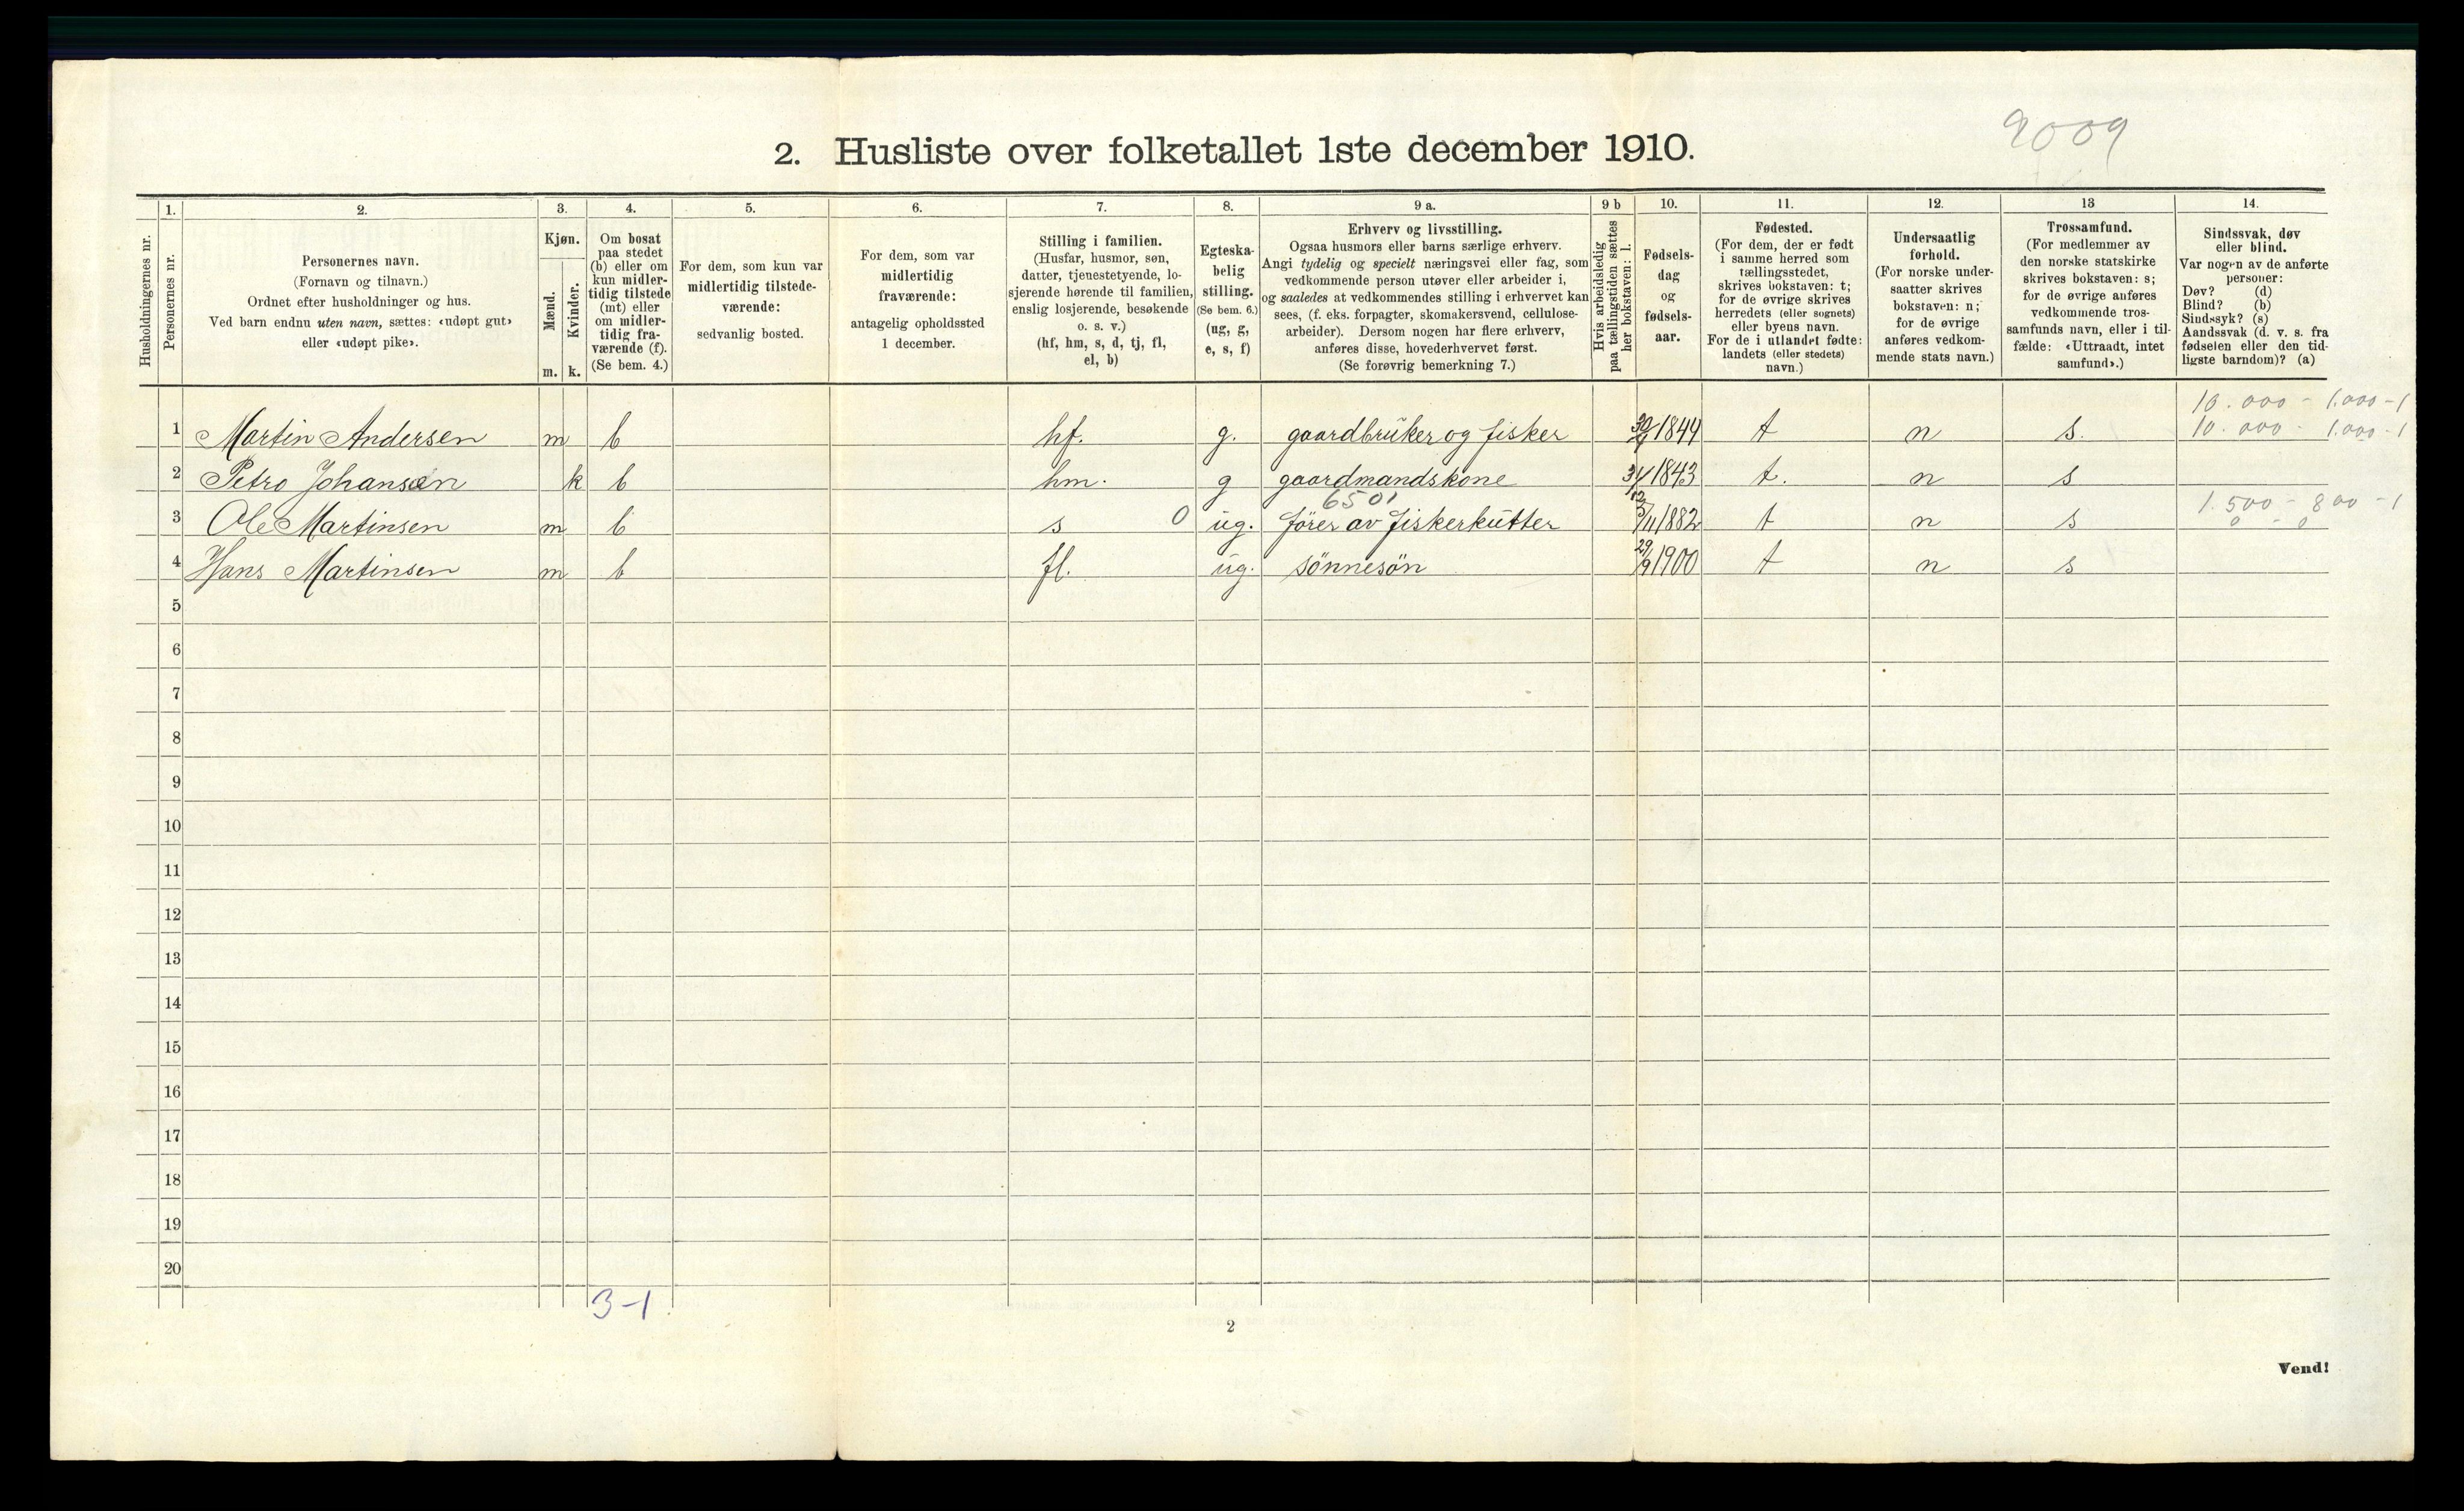 9009
2. Husliste over folketallet 1ste december 1910.
Husholdningernes nr.
1.
Personernes nr.
2.
Personernes navn.
(Fornavn og tilnavn.)
Ordnet efter husholdninger og hus.
Ved barn endnu uten navn, sættes: «udøpt gut»
eller «udøpt pike».
3.
Kjøn.
Mænd.
Kvinder.
m. k.
4.
Om bosat
paa stedet
(b) eller om
kun midler-
tidig tilstede
(mt) eller
om midler-
tidig fra-
værende (f).
(Se bem. 4.)
5.
For dem, som kun var
midlertidig tilstede-
værende:
sedvanlig bosted.
6.
For dem, som var
midlertidig
fraværende:
antagelig opholdssted
1 december.
7.
Stilling i familien.
(Husfar, husmor, søn,
datter, tjenestetyende, lo-
sjerende hørende til familien,
enslig losjerende, besøkende
o. s. v.)
(hf, hm, s, d, tj, fl,
el, b)
8.
Egteska-
belig
stilling.
(Se bem. 6.)
(ug, g,
e, s, f)
9 a.
Erhverv og livsstilling.
Ogsaa husmors eller barns særlige erhverv.
Angi tydelig og specielt næringsvei eller fag, som
vedkommende person utøver eller arbeider i,
og saaledes at vedkommendes stilling i erhvervet kan
sees, (f. eks. forpagter, skomakersvend, cellulose-
arbeider). Dersom nogen har flere erhverv,
anføres disse, hovederhvervet først.
(Se forøvrig bemerkning 7.)
9 b
Hvis arbeidsledig
paa tællingstiden sættes
her bokstaven: l.
10.
Fødsels-
dag
og
fødsels-
aar.
11.
Fødested.
(For dem, der er født
i samme herred som
tællingsstedet,
skrives bokstaven: t;
for de øvrige skrives
herredets (eller sognets)
eller byens navn.
For de i utlandet fødte:
landets (eller stedets)
navn.)
12.
Undersaatlig
forhold.
(For norske under-
saatter skrives
bokstaven: n;
for de øvrige
anføres vedkom-
mende stats navn.)
13
Trossamfund.
(For medlemmer av
den norske statskirke
skrives bokstaven: s;
for de øvrige anføres
vedkommende tros-
samfunds navn, eller i til-
fælde: «Uttraadt, intet
samfund».)
14.
Sindssvak, døv
eller blind.
Var nogen av de anførte
personer:
Døv? (d)
Blind? (b)
Sindssyk? (s)
Aandssvak (d. v. s. fra
fødselen eller den tid-
ligste barndom)? (a)
10.000 - 1.000 - 1
1 Martin Andersen m b hf. g. gaardbruker og fisker 30/4 1844 t n s. 10.000 - 1.000 - 1
2 Petra Johansen k b hm. g gaardmandskone 1843 t. n s
6501 1.500 - 800 - 1
3 Ole Martinsen m b s 0 ug. fører av fiskerkutter 1882 t n s 0 - 0
4 Hans Martinsen m b fl. ug. sønnesøn 29/9 1900 t n s
5
6
7
8
9
10
11
12
13
14
15
16
17
18
19
20
3-1
2
Vend!